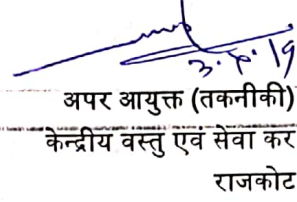 3.8.19
अपर आयुक्त (तकनीकी)
केन्द्रीय वस्तु एवं सेवा कर
राजकोट